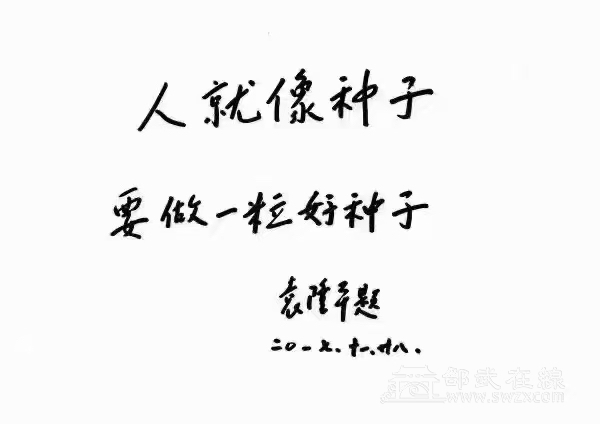 人就像种子
要做一粒好种子
袁隆平题
二〇一七.十一.廿八.
邵武在線